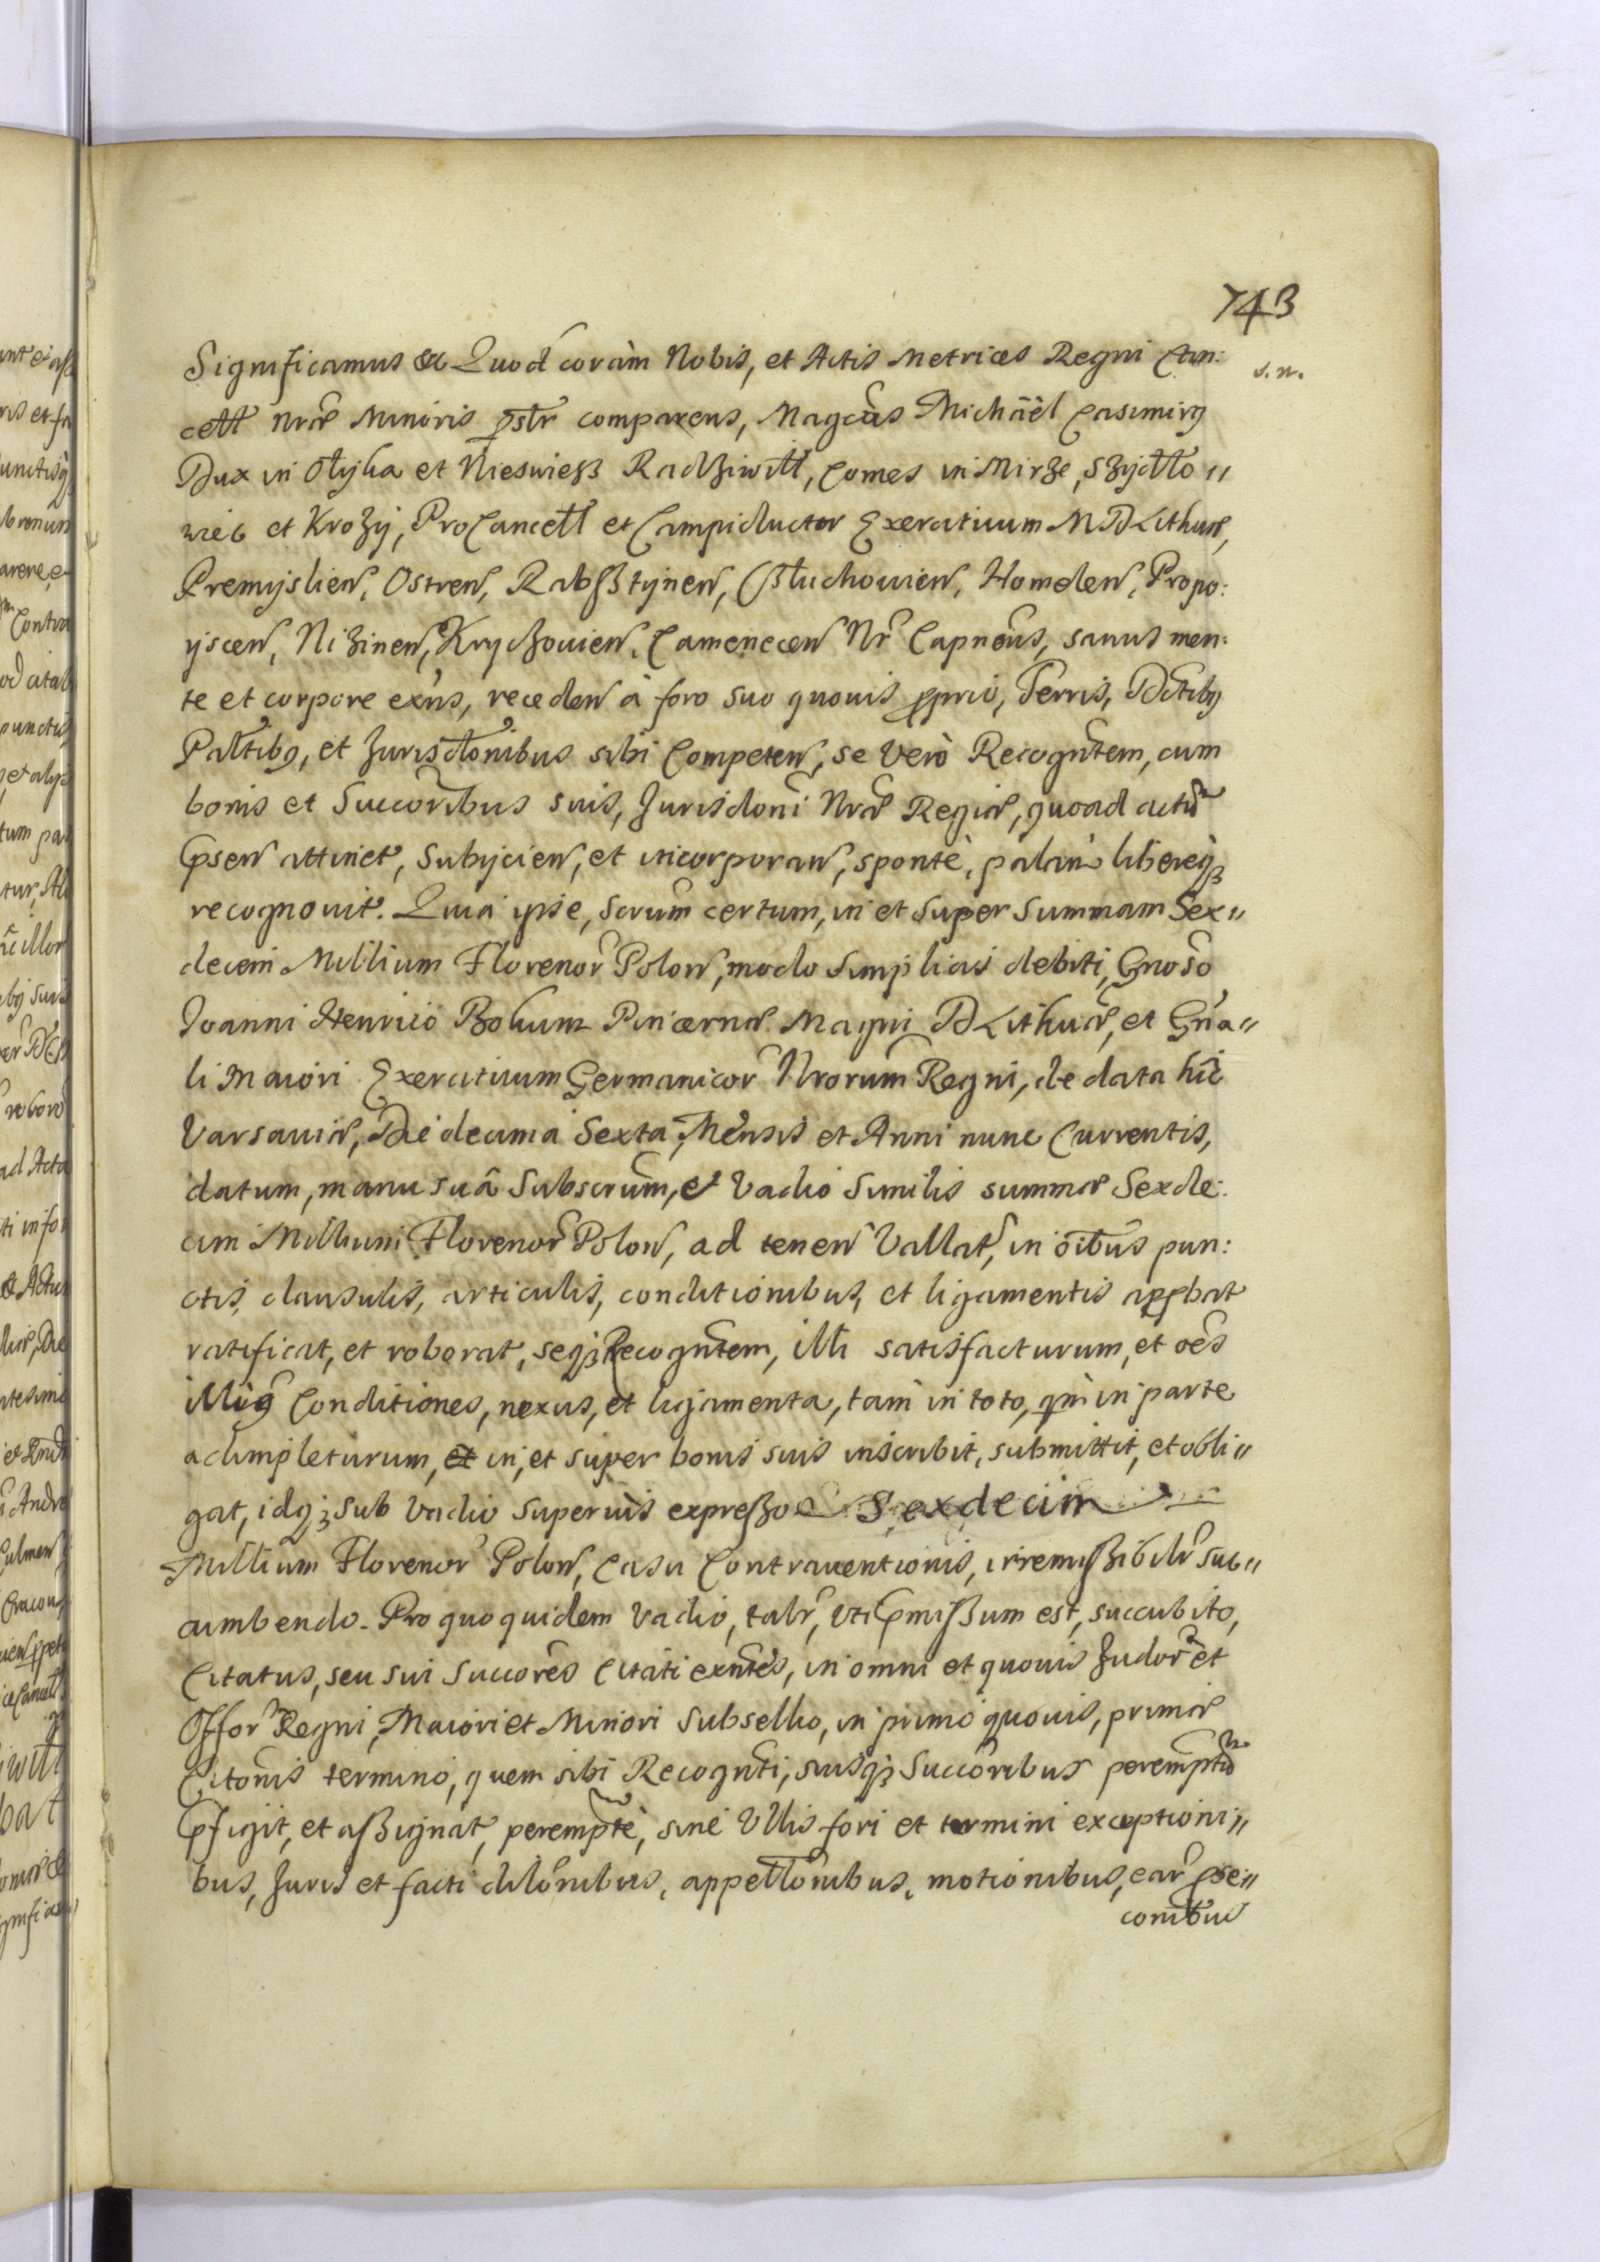 743
Significamus &c Quod coràm Nobis, et Actis Metrices Regni Can:
s. n.
cell nrae Minoris pstr comparens, Magcus Michäel Casimirg
Dux in Olyka et Nieswiesz Radziwill, Comes in Mirze, Szydlo〃
wiec et Krozy, ProCancell et Campiductor Exercituum MDLithuae,
Premyslien, Ostren, Rabsztynen, Człuchouien, Homelen, Propo:
yscen, Nizinen, Krychouien, Camenecen Nr Capneus, sanus men:
te et corpore exns, receden à foro suo quouis pprio, Terris, Dctibg
Paltibg, et Jurisdtonibus sibi Competen, se verò Recogntem, cum
bonis et Succoribus suis, Jurisdoni Nrae Regiae, quoad actũ
psen attinet, Subijcien, et incorporan, spontè, palam libereqз
recognouit. Quià ipse, Scrum certum, in et Super Summam Sex〃
decem Millium Florenor Polon, modo Simplicis debiti, Gnoso
Joanni Henrico Bohum Pincernae Magni D Lithuae, et Gna〃
li Maiori Exercituum Germanicor Nrorum Regni, de data hic
Varsauiae, Die decima Sexta, Mensis et Anni nunc Currentis,
datum, manu suâ Subscrum, et Vadio Similis summae Sexde:
cim Millium Florenor Polon, ad tenen Vallat, in oibus pun:
ctis, clausulis, articulis, conditionibus, et ligamentis appbat
ratificat, et roborat, seqз Recogntem, illi satisfacturum, et oes
illiq Conditiones, nexus, et ligamenta, tam in toto, qm in parte
adimpleturum, et in, et super bonis suis inscribit, submittit, et obli〃
gat, idqз sub Vadio superius expresso Sexdecim
Millium Florenor Polon, Casu Contrauentionis, irremissibilr sub〃
cumbendo. Pro quo quidem Vadio, talr, vti pmissum est, succubito,
Citatus, seu sui Succores Citati exntes, in omni et quouis Judor et
Offor Regni, Maiori et Minori Subsellio, in primo quouis, primae
Citonis termino, quem sibi Recognti, suisqз Succoribus peremptũ
pfigit, et assignat, perempte, sine Vllis fori et termini exceptioni〃
bus, Juris et facti dilonibus, appellonibus, motionibus, ear pse〃
conibus